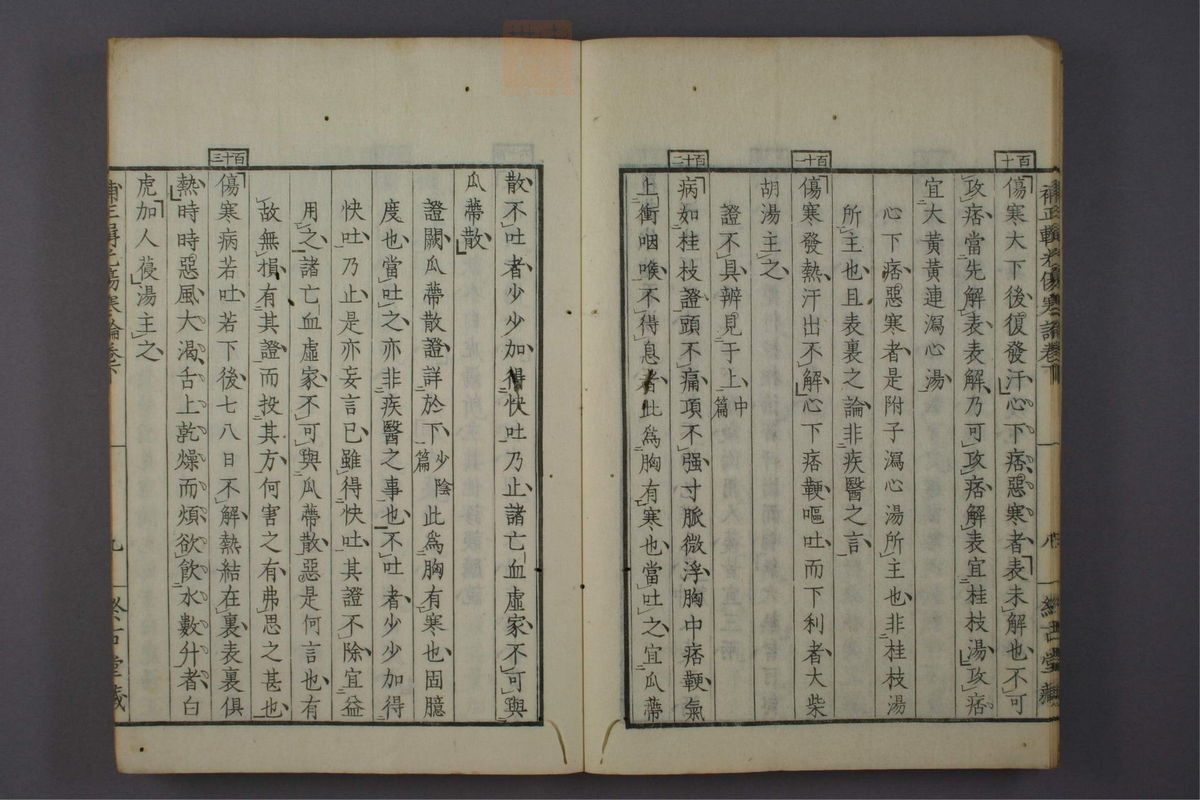 百十
傷寒大下後復發汗心下痞惡寒者表未解也不可
攻痞當先解表表解乃可攻痞解表宜桂枝湯攻痞
宜大黃黃連瀉心湯
心下痞惡寒者是附子瀉心湯所主也非桂枝湯
所主也且表裏之論非疾醫之言
百十一
傷寒發熱汗出不解心下痞鞕嘔吐而下利者大柴
胡湯主之
證不具辨見于上中篇
百十二
病如桂枝證頭不痛項不强寸脈微浮胸中痞鞕氣
上衝咽喉不得息者此爲胸有寒也當吐之宜瓜蔕
散不吐者少少加得快吐乃止諸亡血虛家不可與
瓜蔕散
證闕瓜蔕散證詳於下少陰篇此爲胸有寒也固臆
度也當吐之亦非疾醫之事也不吐者少少加得
快吐乃止是亦妄言已雖得快吐其證不除宜益
用之諸亡血虛家不可與瓜蔕散惡是何言也有
故無損有其證而投其方何害之有弗思之甚也
百十三
傷寒病若吐若下後七八日不解熱結在裏表裏俱
熱時時惡風大渴舌上乾燥而煩欲飲水數升者白
虎加人葠湯主之